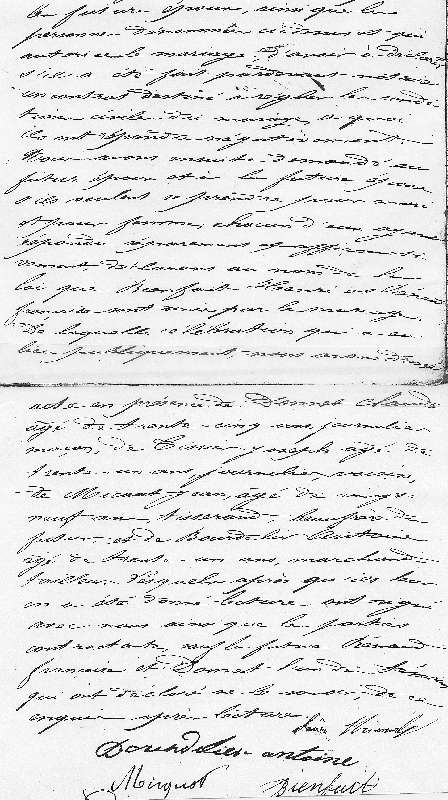 le futur époux, ainsi que les
personnes dénommées ci-dessus et qui
autorisent le mariage, d'avoir à déclarer
s'il a été fait par devant notaire
un contrat destiné à régler les condi
tions civiles du mariage, à quoi
ils ont répondu négativement.
Nous avons ensuite demandé au
futur époux et à la future épouse
s'ils veulent se prendre pour mari
et pour femme, chacun d'eux ayant
répondu séparément et affirmati
vement déclarons au nom de la
loi que Bienfait Henri et
françoise sont unis par le mariage
De laquelle célébration qui a eu
lieu publiquement nous avons dressé
acte en présence de Claude
âgé de trente-cinq ans, journalier
maçon, de Joseph âgé de
trente-un ans, journalier, voisins,
de Jean, âgé de vingt
neuf ans tisserand, beau frère de
futur et de Bourdelier Antoine
âgé de trente-un ans, marchand
tailleur. Lesquels après qu'il leur
en a été donné lecture ont signé
avec nous ainsi que les parties
contractantes, sauf la future
françoise et l'un des témoins
qui ont déclaré ne le savoir, de ce
enquis après lecture.
Bourdelier antoine
Bienfait